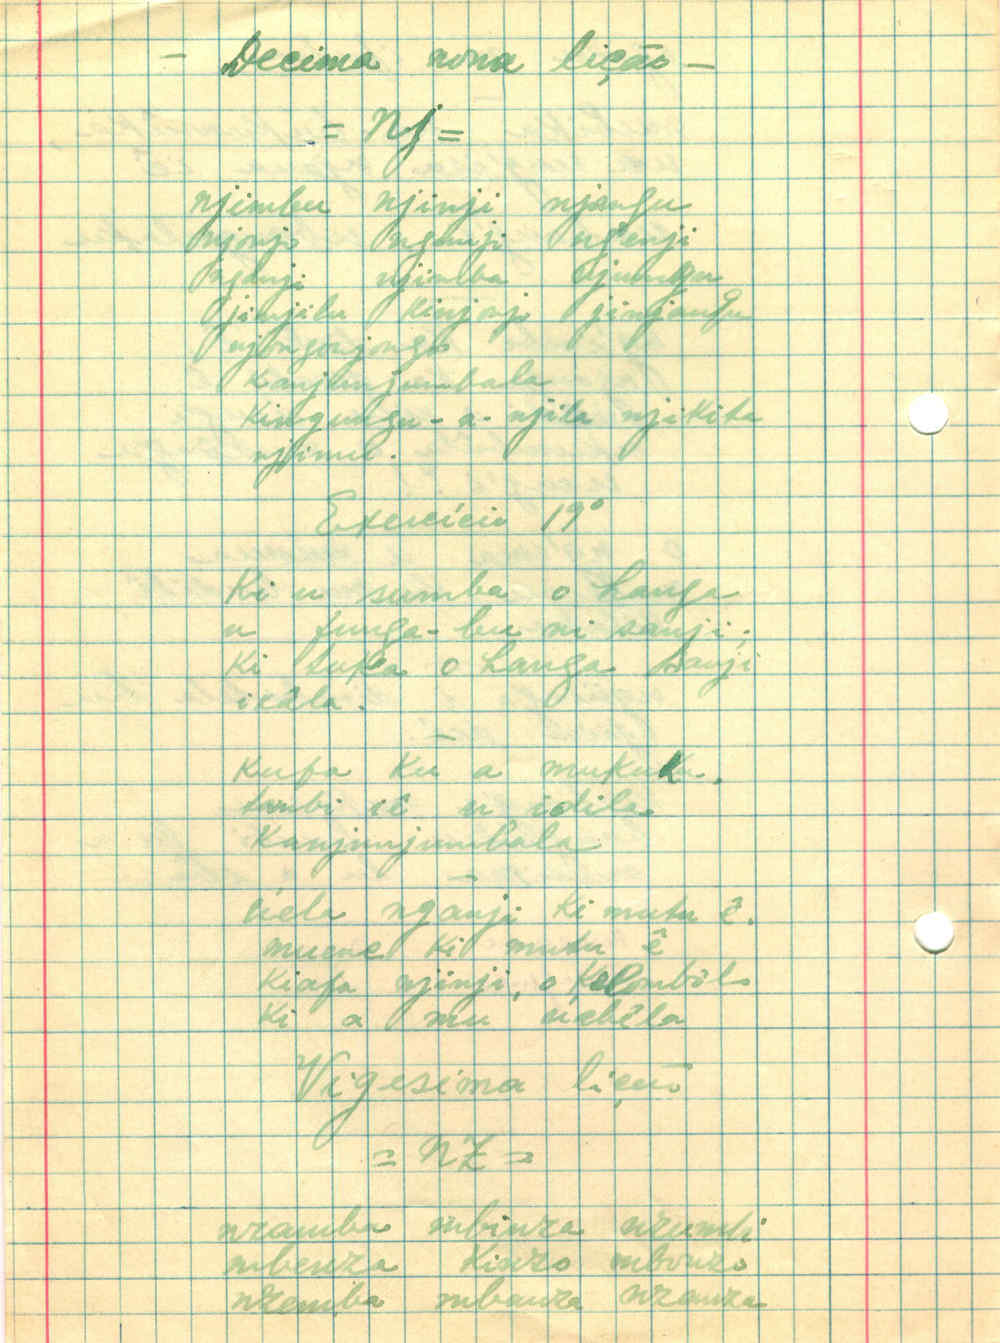 - Decima nona lição -
= Nj =
njimbu njinji njangu
njonjo nganji ngenji
nganji njimba
jinjila kinjonjo jinjangu
njongonjongo
Kanjunjumbala
Kingungu-a-njila njikita
njimu.
Exercício 19º
Ki u sumba o hanga
u funga-bu ni sanji;
Ki tuka o hanga sanji
ixâla.
-
Kufa Ku a mukuku,
tambi ié u idila
Kanjunjumbala
-
uela nganji Ki mutu ê.
muene Ki mutu ê
Kiafa njinji, o Kolombôlo
Ki a mu
Vigesima lição
= NZ =
nzamba mbinza nzumbi
mbenza Kinzo mbonzo
nzemba mbanza nzanza